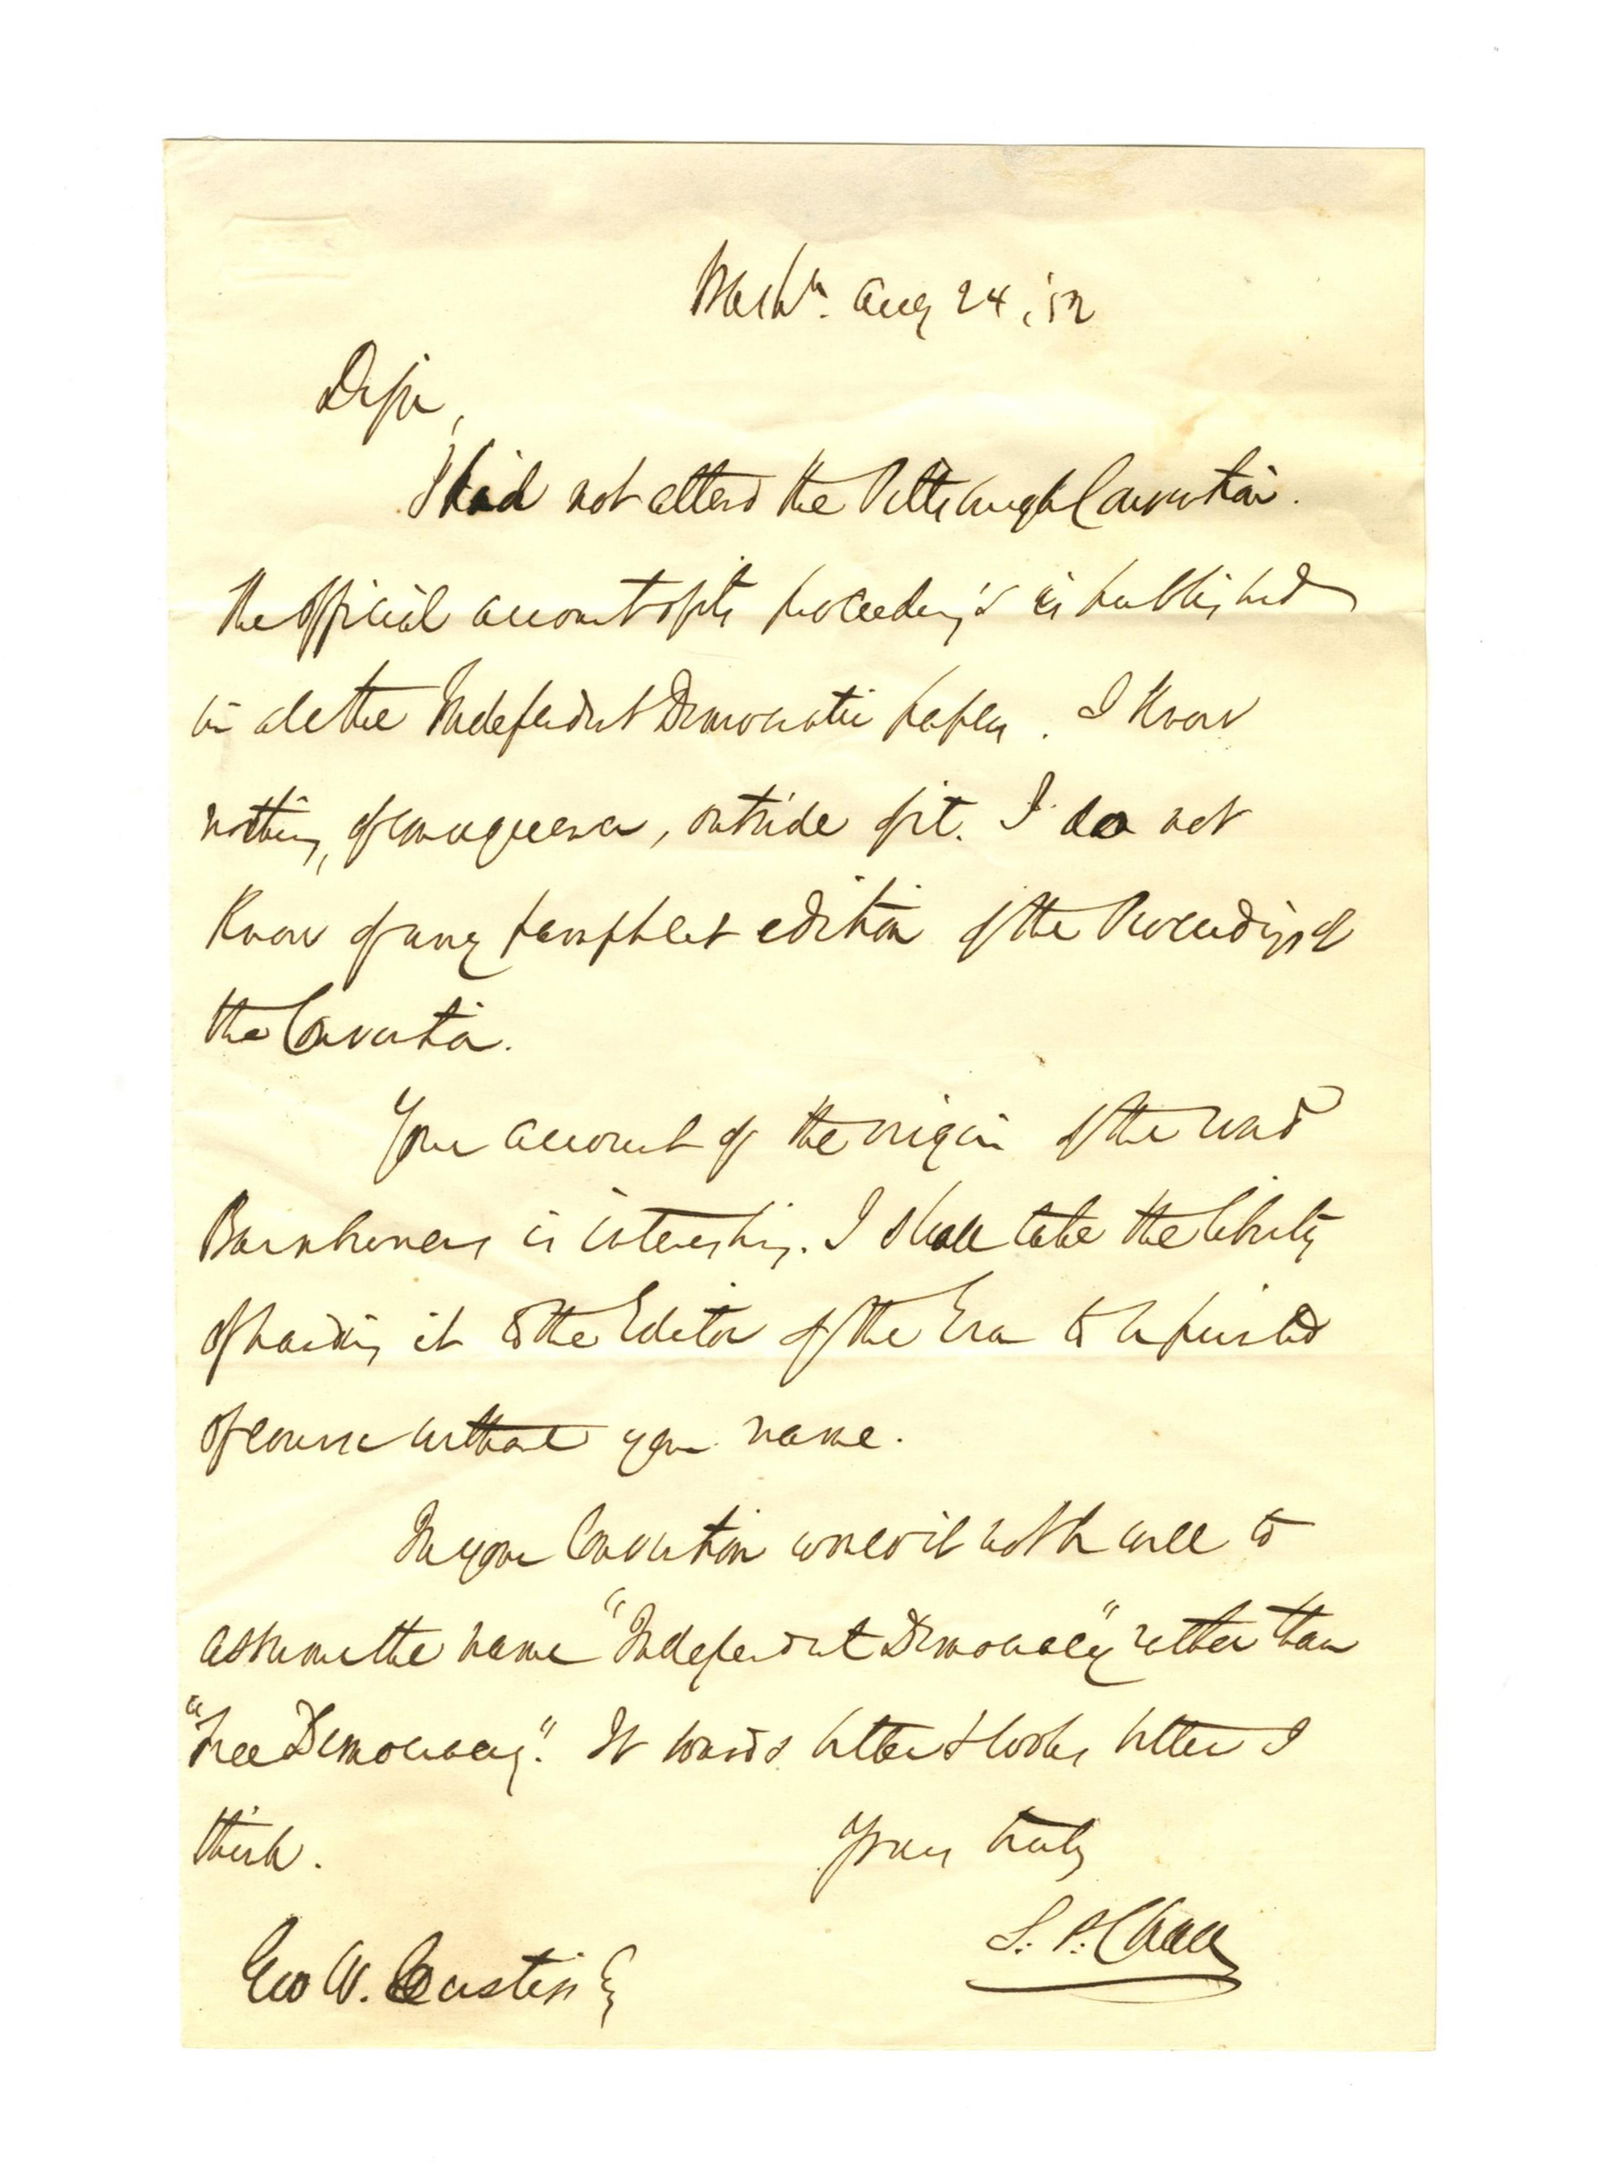 Washn. Aug 24, '52
Dr Sir,
I did not attend the Pittsburgh Convention.
The official account of its proceedings is published
in all the Independent Democratic papers. I know
nothing, of consequence, outside of it. I do not
know of any pamphlet edition of the Proceedings of
the Convention.
Your account of the origin of the word
Barnburners is interesting. I shall take the liberty
of handing it to the Editor of the Era to be printed
of course without your name.
In your Convention would it not be well to
assume the name "Independent Democracy" rather than
"Free Democracy." It sounds better & looks better I
think.
Yours truly
S. P. Chase
Geo W. Custis Esq